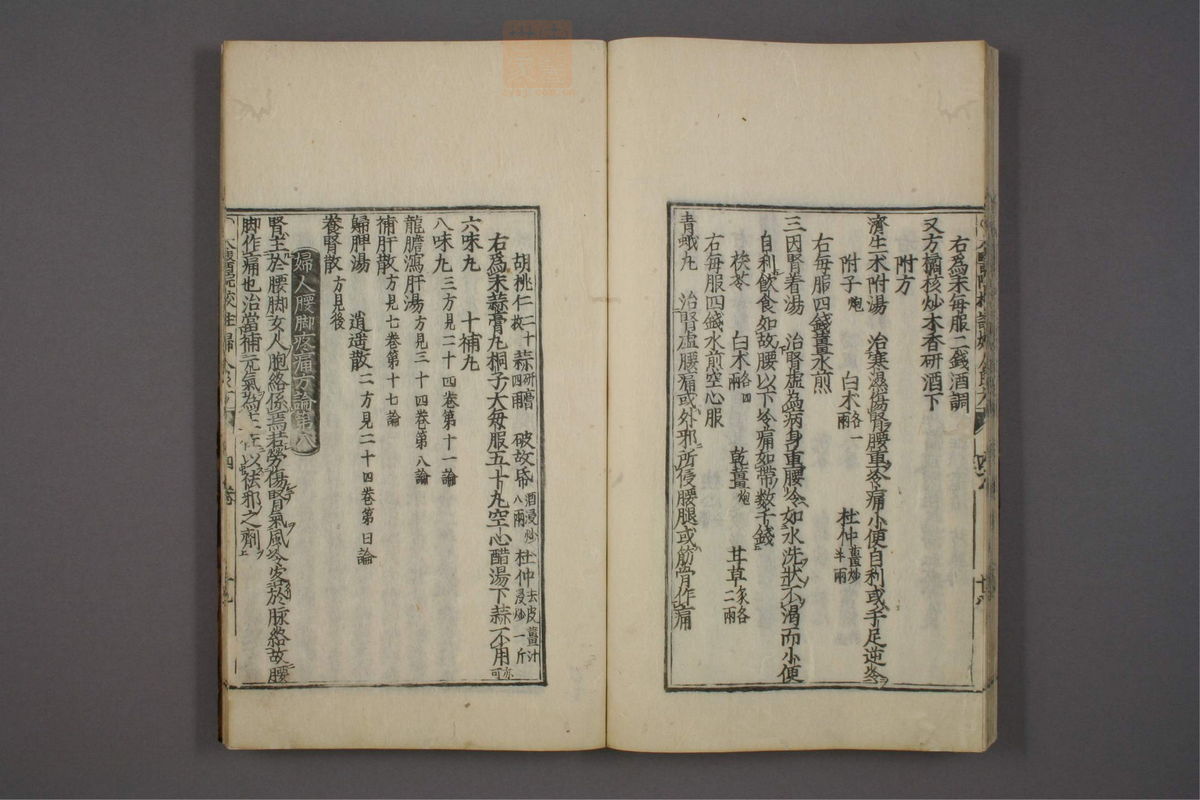 右爲末每服二錢酒調
又方橘核炒木香研酒下
附方
濟生术附湯 治寒濕傷腎腰重冷痛小便自利或手足逆冷
附子炮 白术各一兩 杜仲薑炒半兩
右每服四錢薑水煎
三因腎着湯 治腎虛爲病身重腰冷如水洗狀不渴而小便
自利飲食如故腰以下冷痛如帶数千錢
茯苓 白术各四兩 乾薑炮 甘草炙各二兩
右每服四錢水煎空心服
青蛾丸 治腎虛腰痛或外邪所侵腰腿或筋骨作痛
胡桃仁二十枚 蒜研膏四兩 破故紙酒浸炒八兩 杜仲去皮薑汁浸炒一斤
右爲末蒜膏丸桐子大每服五十丸空心醋湯下蒜不用亦可
六味丸 十補丸
八味丸三方見二十四卷第十一論
龍膽瀉肝湯方見三十四卷第八論
補肝散方見七卷第十七論
歸脾湯 逍遥散二方見二十四卷第日論
養腎散方見後
婦人腰脚疼痛方論第六
腎主於腰脚女人胞絡係焉若勞傷腎氣風冷客於脉絡故腰
脚作痛也治當補元氣爲主佐以祛邪之劑